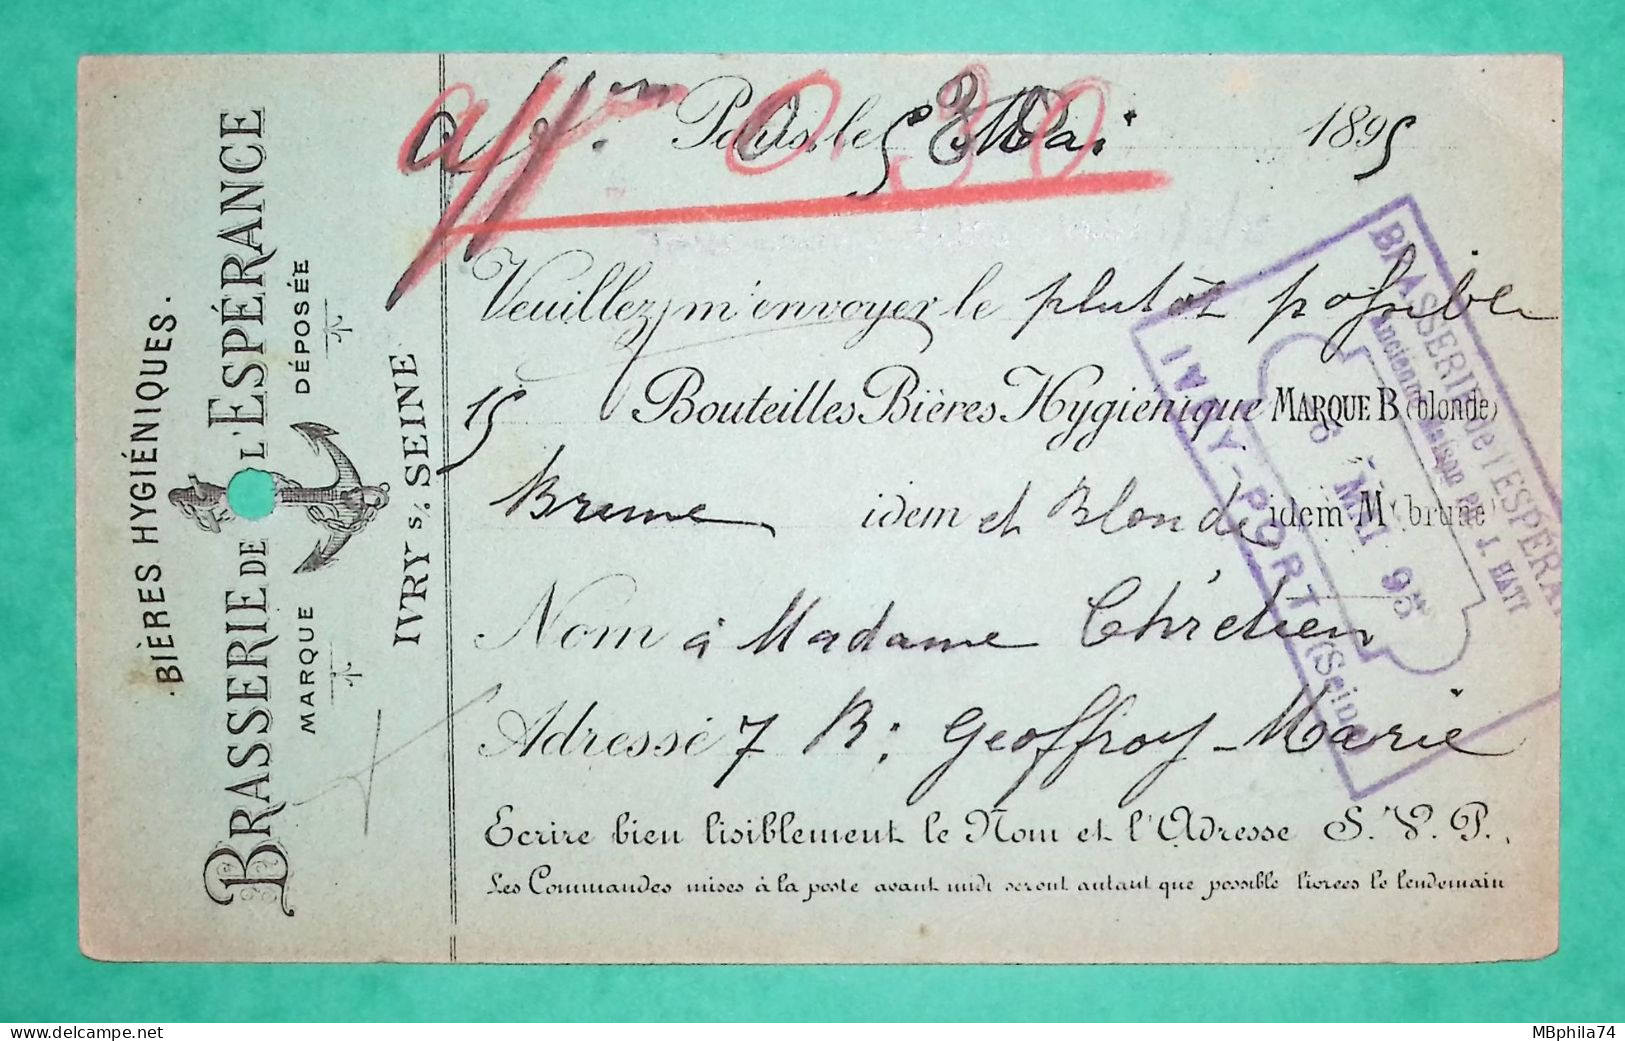 ·BIÈRES HYGIÉNIQUES.
BRASSERIE DE L'ESPÉRANCE
MARQUE DÉPOSÉE
IVRY s/ SEINE
affm 0.30
Paris, le 5 Mai 1895
Veuillez m'envoyer le plutôt possible
15 Bouteilles Bières Hygiénique MARQUE B (blonde)
Brune idem et Blonde idem M (brune)
Nom à Madame Chrétien
Adresse 7 R: Geoffroy-Marie
Ecrire bien lisiblement le Nom et l'Adresse S. V. P.
Les Commandes mises à la poste avant midi seront autant que possible livrées le lendemain
BRASSERIE de l'ESPERA
Ancienne Maison J. HATT
6 MAI 95
IVRY-PORT (Seine
www.delcampe.net
MBphila74